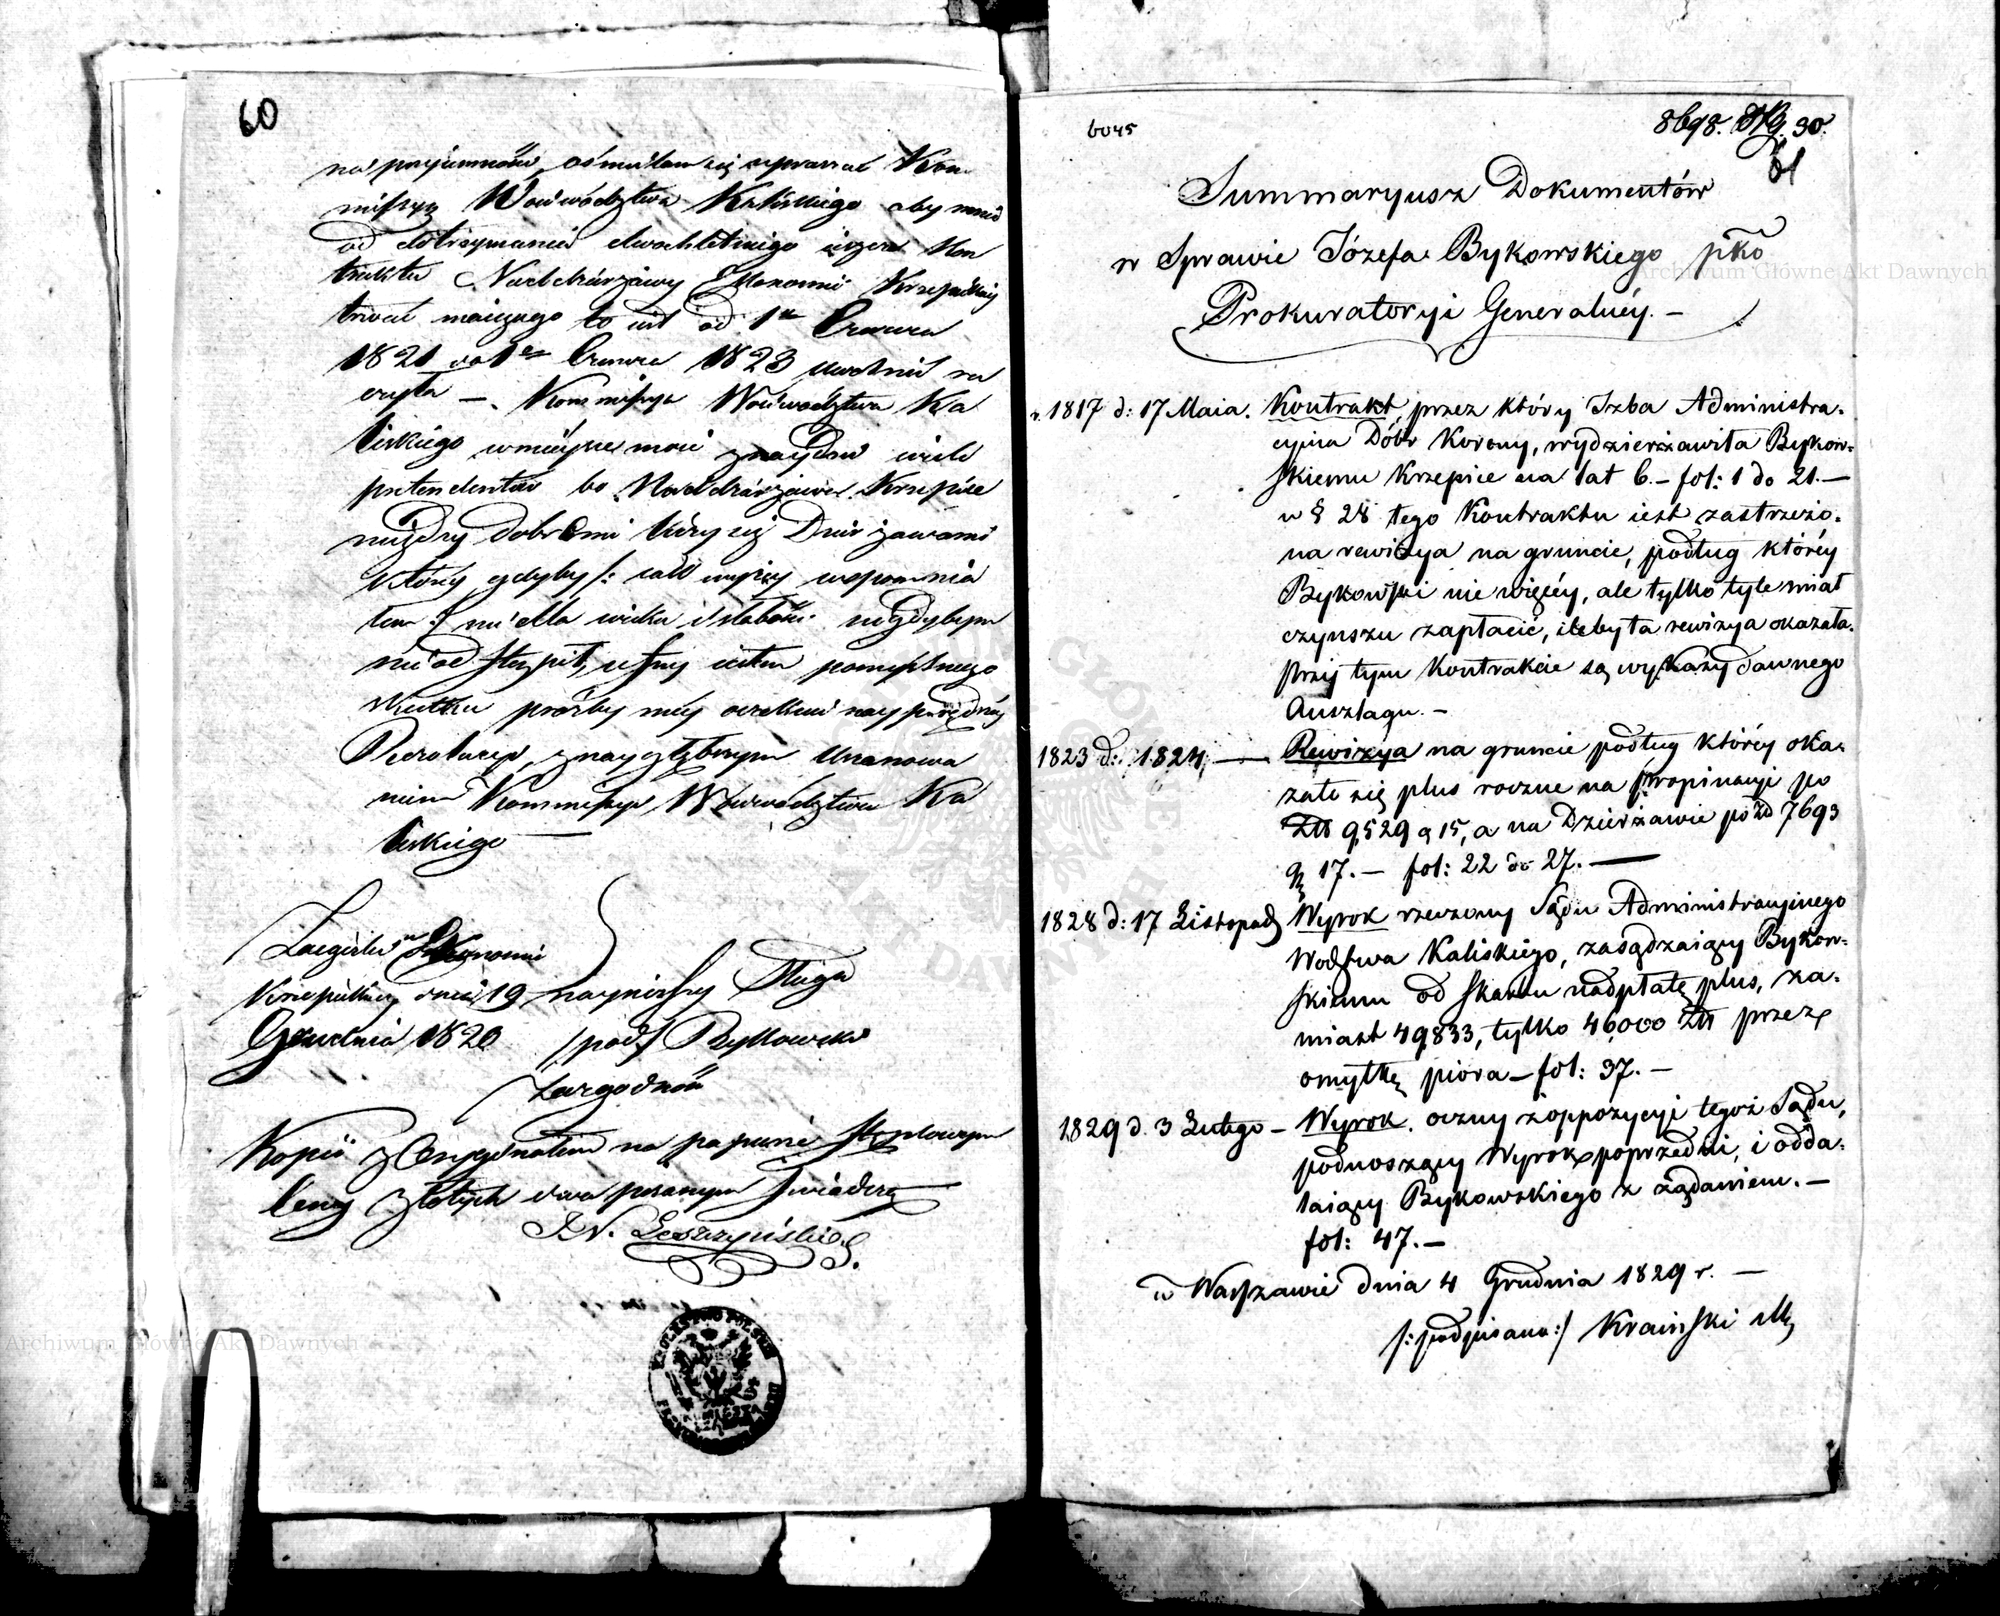 60
na przyjemność ośmielam się upraszać Kom
missyę Woiewództwa Kaliskiego aby mnie
od dotrzymania dwochletniego ieszcze Kon
traktu Naddzierżawy Ekonomii Krzepickiey
trwać maiącego to iest od 1go Czerwca
1821 do 1go Czerwca 1823 uwolnić ra
czyła — Kommissya Woiewództwa Ka
liskiego w mieysce moie znaydzie wiele
pretendentów bo Naddzierżawa Krzepice
między dobremi liczy się Dzierżawami
którey gdyby /: iako wyżey wspomnia
łem :/ nie dla wieku i słabości nigdybym
nie odstąpił, ufny iestem pomyślnego
skutku prośby mey oczekuię nayprędzey
Rezolucyi, z naygłębszym uszanowa
niem Kommissyi Woiewództwa Ka
liskiego —
Zagórze Ekonomii
Krzepickiey dnia 19 nayniższy Sługa
Grudnia 1820 /podp/ Bykowski
Za zgodność
Kopii z Oryginałem na papierze stęplowym
ceny złotych dwa pisanym świadczę
J. N. Leszczyński
6045
8698. 30.
61
Summaryusz Dokumentów
w Sprawie Józefa Bykowskiego pko
Prokuratoryi Generalnéy. –
r. 1817 d: 17 Maia. Kontrakt, przez który Izba Administra-
cyina Dóbr Korony, wydzierżawiła Bykow-
skiemu Krzepice na lat 6. – fol: 1 do 21. –
w § 28 tego Kontraktu iest zastrzeżo-
na rewizya na gruncie, podług któréy
Bykowski nie więcéy, ale tylko tyle miał
czynszu zapłacić, ileby ta rewizya okazała.
Przy tym Kontrakcie są wykazy dawnego
Auszlagu. –
1823 d: 1824, — Rewizya na gruncie podług któréy oka-
zało się plus roczne na propinacyi po
Zł 9529 g 15, a na Dzierżawie po Zł 7693
g 17. – fol: 22 do 27. —
1828 d: 17 Listopada Wyrok rzeczony Sądu Administracyinego
Wodztwa Kaliskiego, zasądzaiący Bykow-
skiemu od Skarbu nadpłatę plus, za-
miast 49833, tylko 46000 Zł przez
omyłkę pióra – fol: 37. –
1829 d. 3 Lutego – Wyrok oczny z oppozycyi tegoż Sądu,
podnoszący Wyrok poprzedni, i odda-
laiący Bykowskiego z żądaniem. –
fol: 47. –
w Warszawie dnia 4 Grudnia 1829 r. —
/: podpisano :/ Kraiński M
KRÓLESTWO POLSKIE
Archiwum Główne Akt Dawnych
Archiwum Główne Akt Dawnych